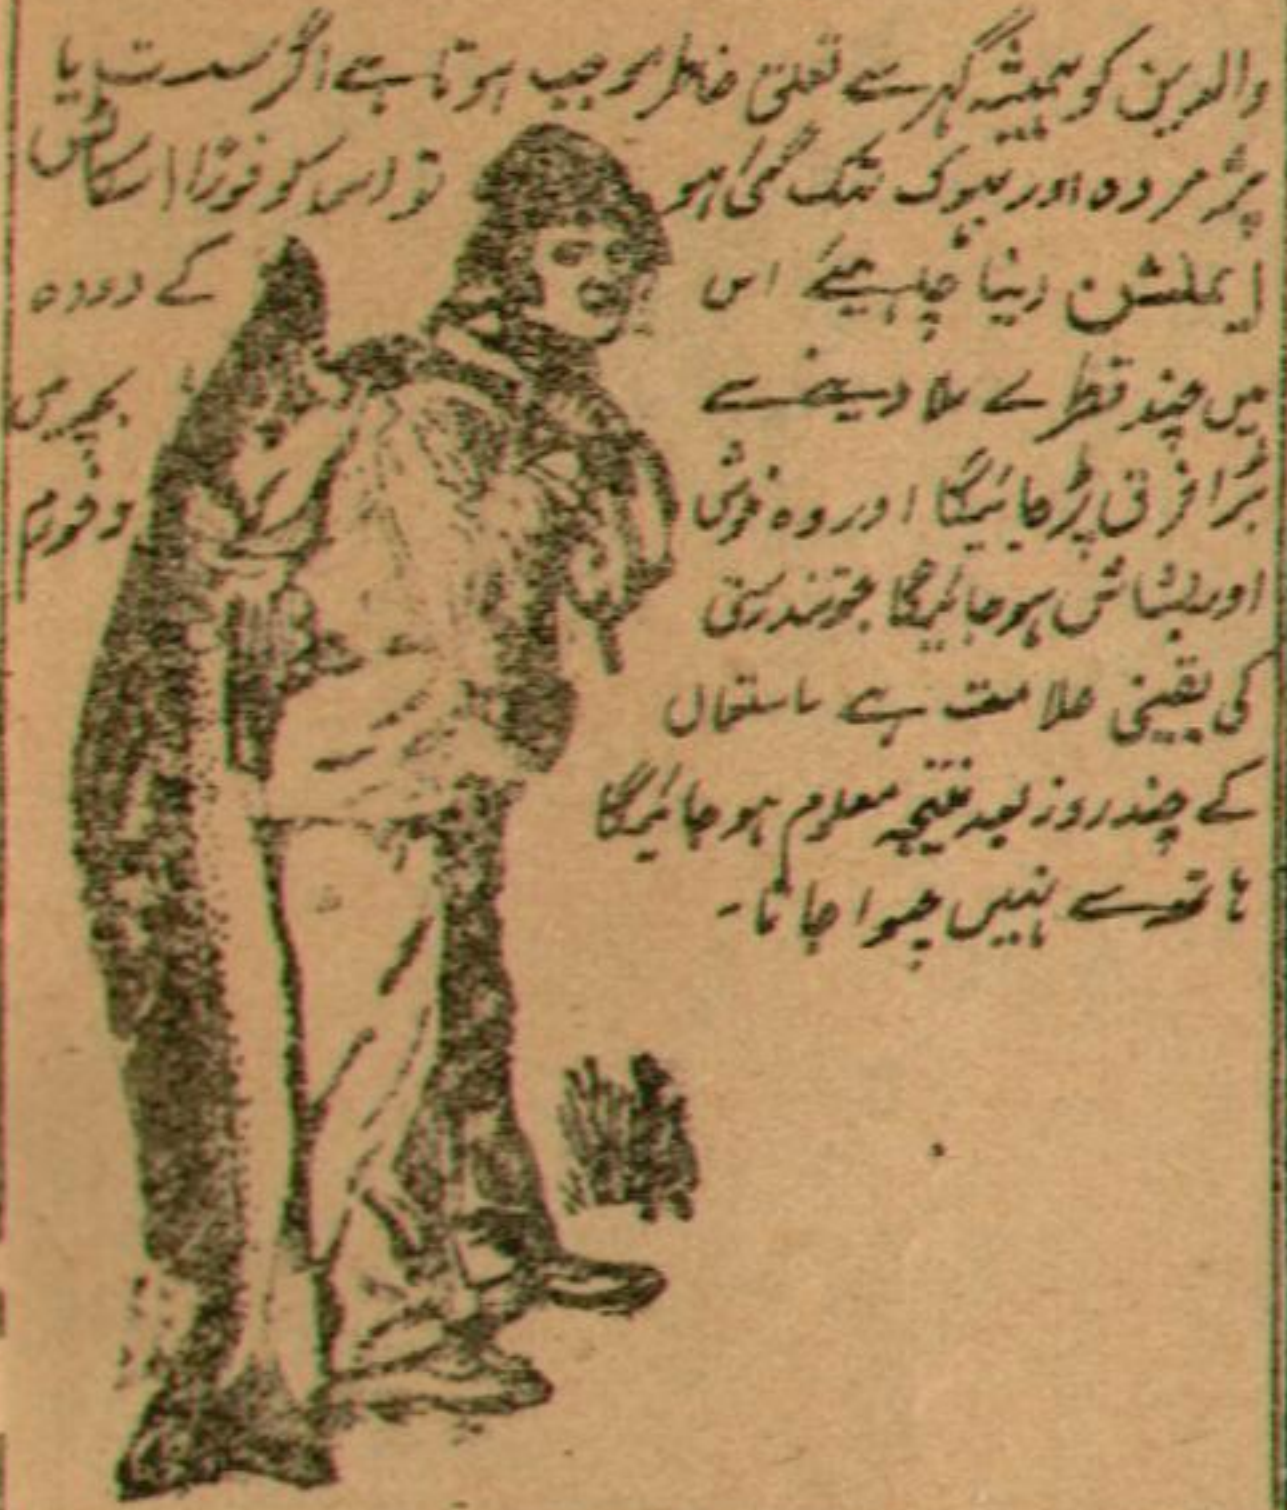 والدین کو ہمیشہ گہر سے تعلق خاطر موجب ہوتا ہے اگر سست یا
پژمردہ اور بہوک تہک گئی ہو تو اس کو فوراً اسکاٹس
ایملشن دینا چاہیئے اس کے دودہ
میں چند قطرے ملا دینے سے بچہ میں
بڑا فرق پڑ جائیگا اور وہ خوش و خورم
اور بشاش ہو جائیگا جو تندرستی
کی یقینی علامت ہے استعمال
کے چند روز بعد نتیجہ معلوم ہو جائیگا
ہاتھ سے نہیں چہوا جاتا۔